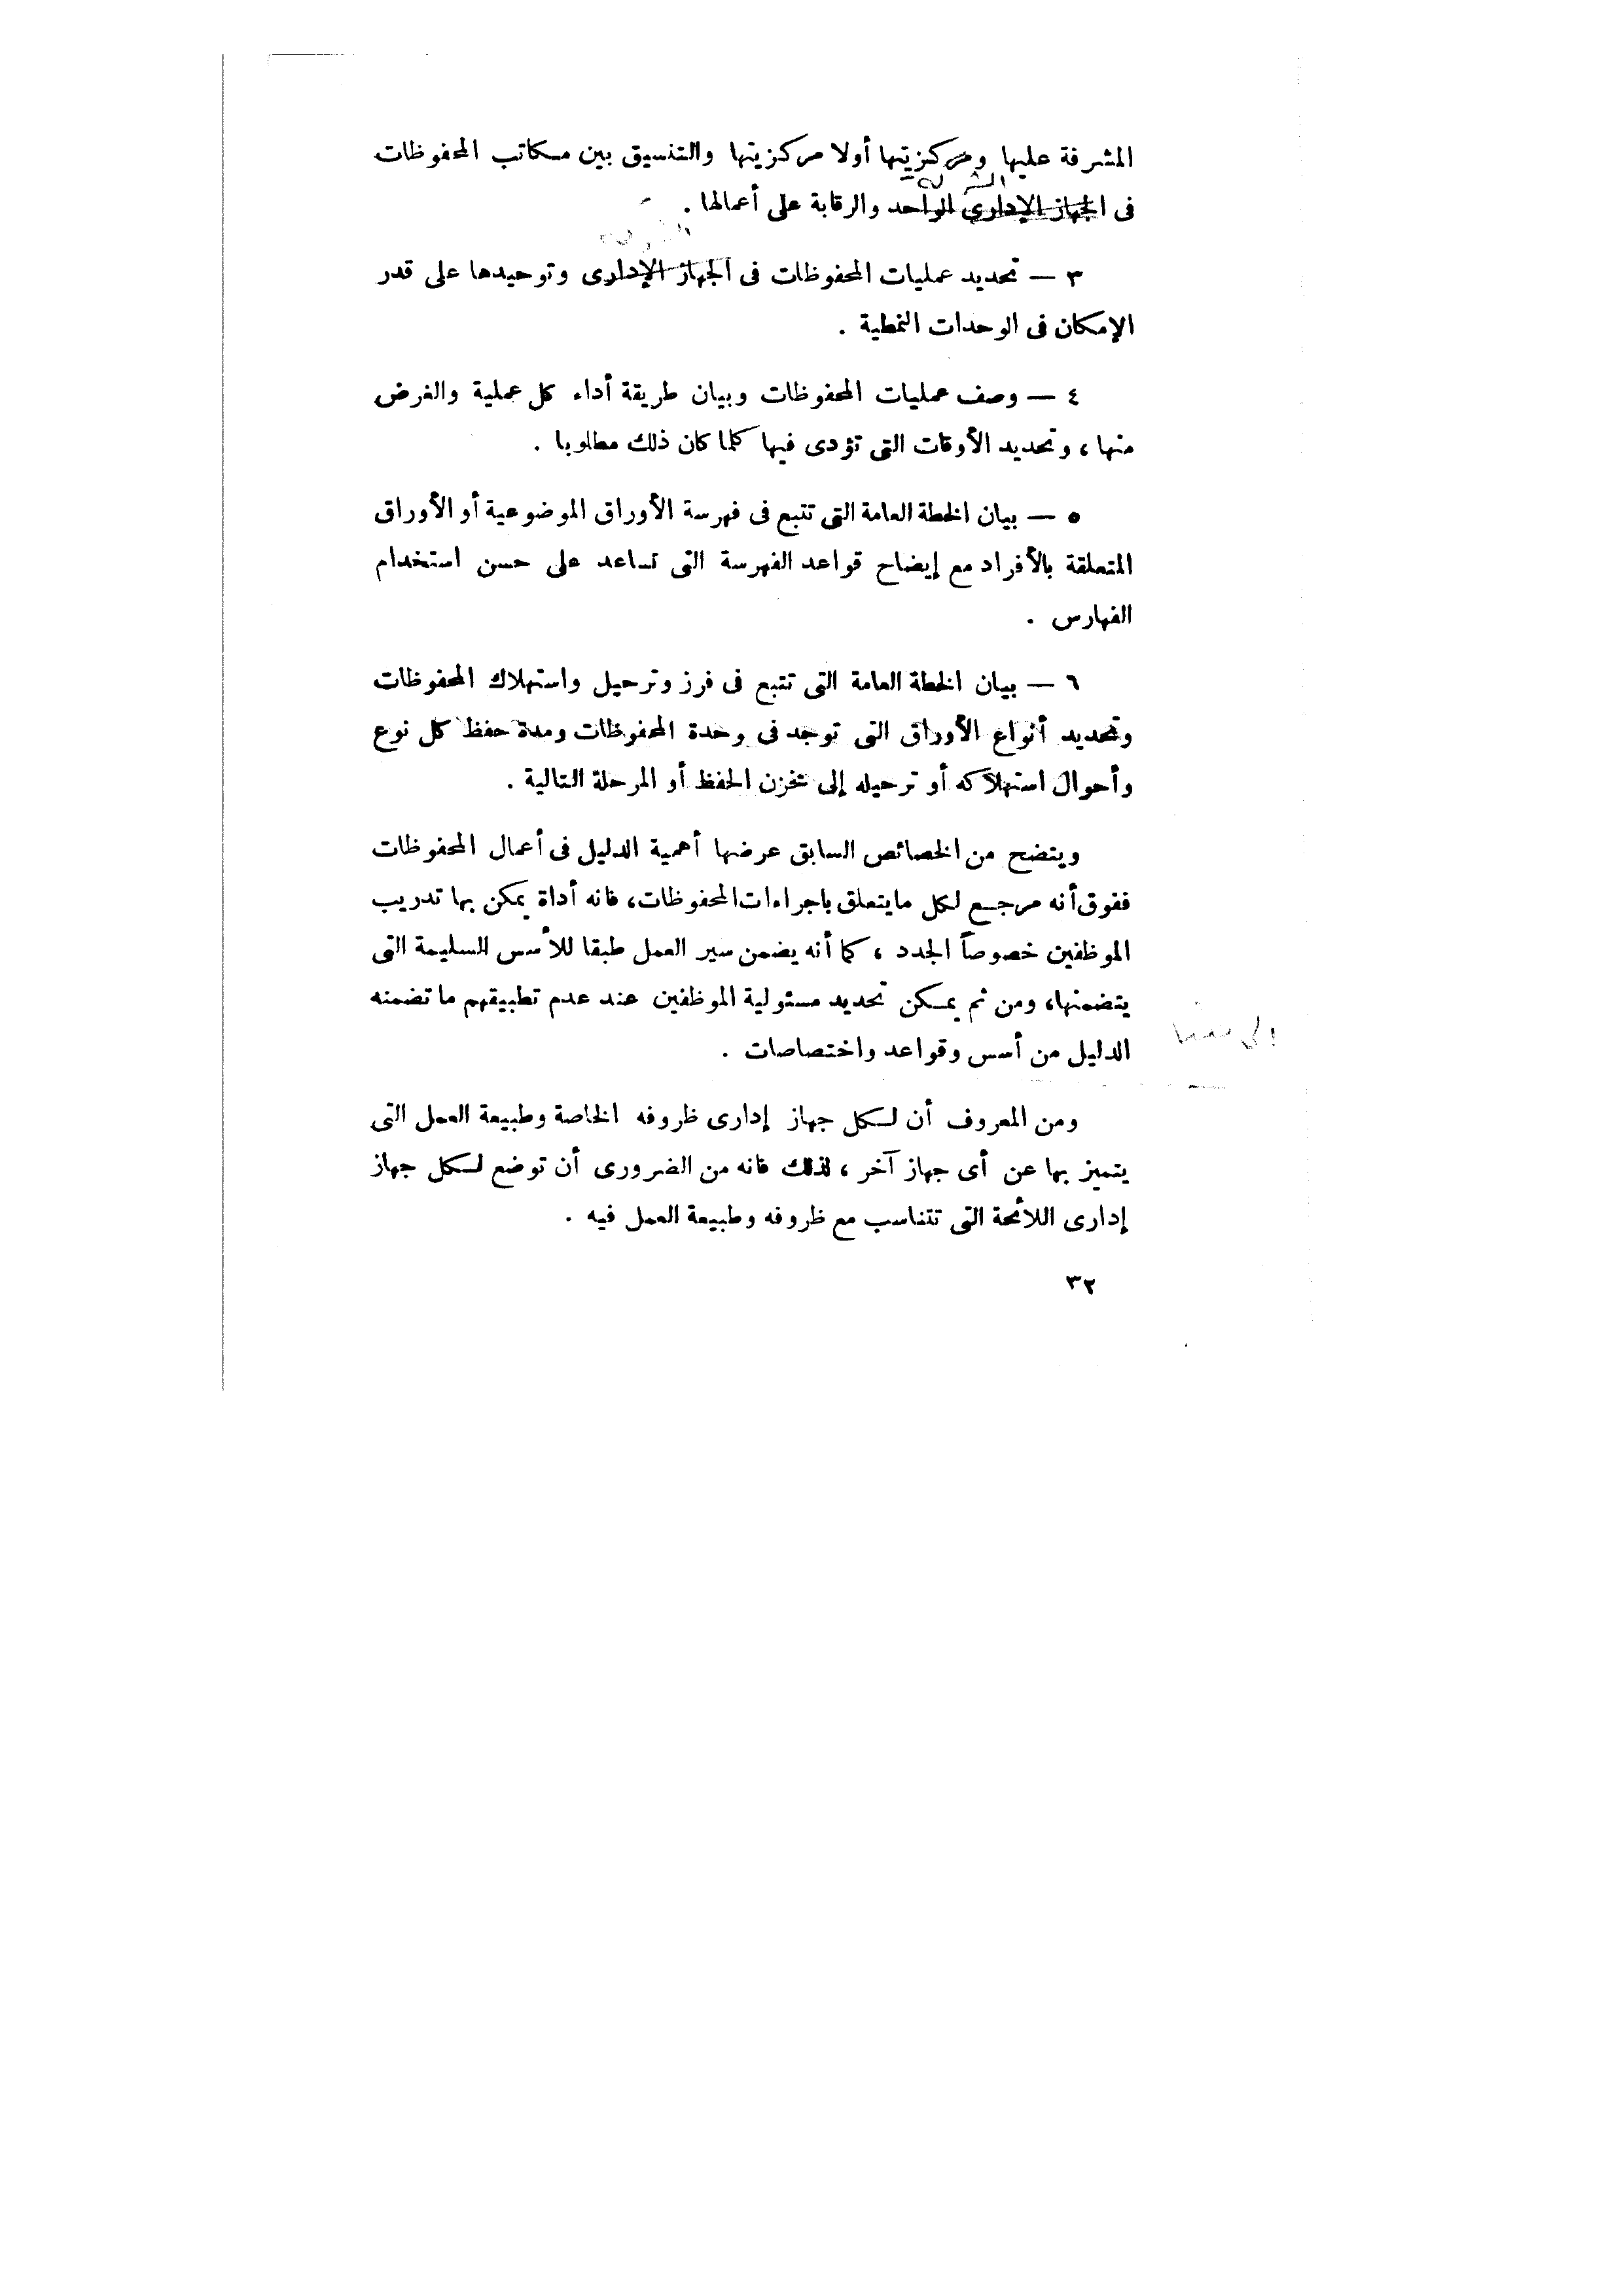 المشرفة عليها ومركزيتها أولا مركزيتها والتنسيق بين مكاتب المحفوظات
فى الجهاز الإدارى الواحد والرقابة على أعمالها .
٣ — تحديد عمليات المحفوظات فى الجهاز الإدارى وتوحيدها على قدر
الإمكان فى الوحدات النمطية .
٤ — وصف عمليات المحفوظات وبيان طريقة أداء كل عملية والغرض
منها ، وتحديد الأوقات التى تؤدى فيها كلما كان ذلك مطلوبا .
٥ — بيان الخطة العامة التى تتبع فى فهرسة الأوراق الموضوعية أو الأوراق
المتعلقة بالأفراد مع إيضاح قواعد الفهرسة التى تساعد على حسن استخدام
الفهارس .
٦ — بيان الخطة العامة التى تتبع فى فرز وترحيل واستهلاك المحفوظات
وتحديد أنواع الأوراق التى توجد فى وحدة المحفوظات ومدة حفظ كل نوع
وأحوال استهلاكه أو ترحيله إلى مخزن الحفظ أو المرحلة التالية .
ويتضح من الخصائص السابق عرضها أهمية الدليل فى أعمال المحفوظات
ففوق أنه مرجع لكل مايتعلق باجراءات المحفوظات، فانه أداة يمكن بها تدريب
الموظفين خصوصاً الجدد ، كما أنه يضمن سير العمل طبقا للأسس السليمة التى
يتضمنها، ومن ثم يمكن تحديد مسئولية الموظفين عند عدم تطبيقهم ما تضمنه
الدليل من أسس وقواعد واختصاصات .
ومن المعروف أن لكل جهاز إدارى ظروفه الخاصة وطبيعة العمل التى
يتميز بها عن أى جهاز آخر ، لذلك فانه من الضرورى أن توضع لكل جهاز
إدارى اللائحة التى تتناسب مع ظروفه وطبيعة العمل فيه .
٣٢